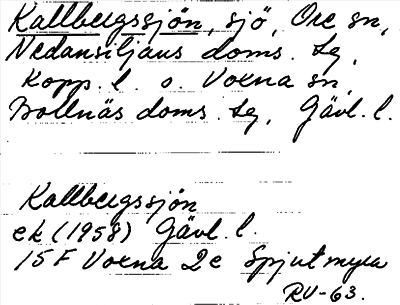 Kallbergssjön, sjö, Ore sn,
Nedansiljans doms. tg,
Kopp. l. o. Voxna sn,
Bollnäs doms. tg, Gävl. l.
Kallbergssjön
ek (1958) Gävl. l.
15F Voxna 2e Spjutmyra
RV-63.